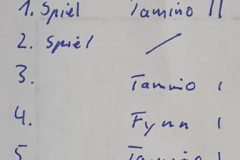 1. Spiel Tamino II
2. Spiel /
3. Tamino I
4. Fynn I
5. Tamino I